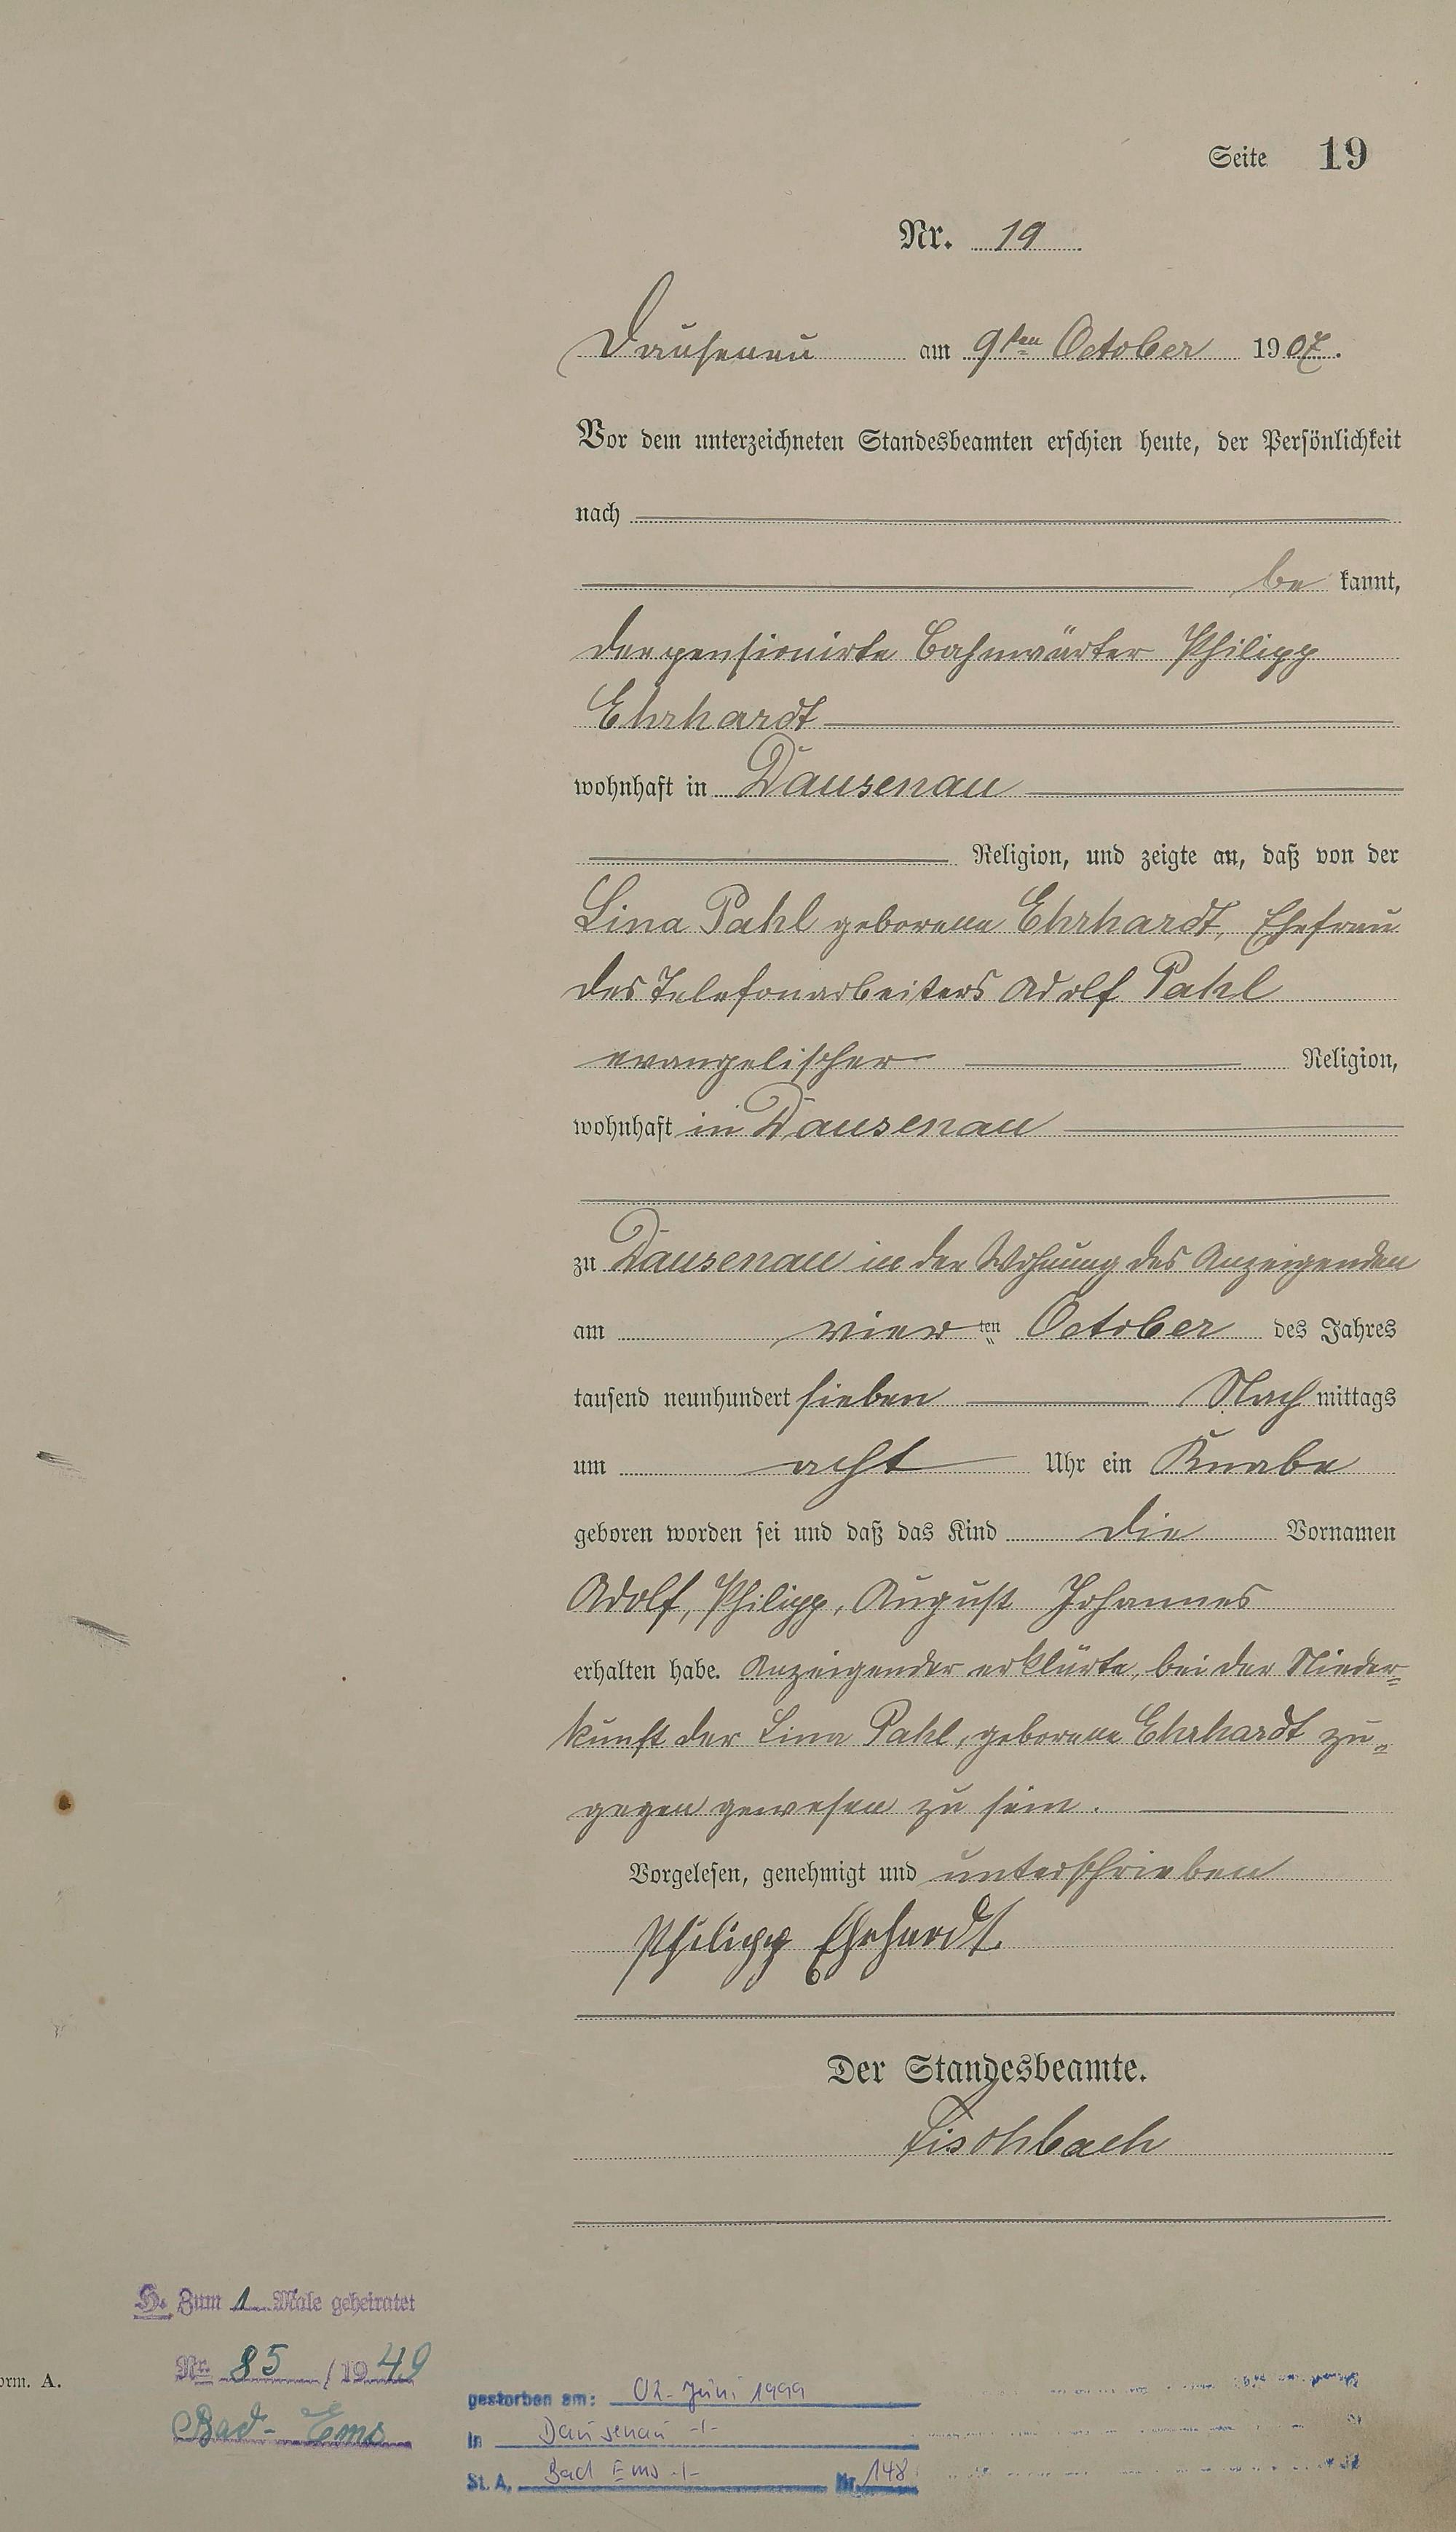 Seite 19
Nr. 19
Dausenau am 9ten October 1907.
Vor dem unterzeichneten Standesbeamten erschien heute, der Persönlichkeit
nach
be kannt,
der pensionirte Bahnwärter Philipp
Ehrhardt
wohnhaft in Dausenau
Religion, und zeigte an, daß von der
Lina Pahl geborene Ehrhardt, Ehefrau
des Telefonarbeiters Adolf Pahl
evangelischer Religion,
wohnhaft in Dausenau
zu Dausenau in der Wohnung des Anzeigenden
am vier ten October des Jahres
tausend neunhundert sieben Nach mittags
um acht Uhr ein Knabe
geboren worden sei und daß das Kind die Vornamen
Adolf, Philipp, August Johannes
erhalten habe. Anzeigender erklärte, bei der Nieder=
kunft der Lina Pahl, geborene Ehrhardt zu=
gegen gewesen zu sein.
Vorgelesen, genehmigt und unterschrieben
Philipp Ehrhardt.
Der Standesbeamte.
Fischbach
H. Zum 1 Male geheiratet
Nr. 85 / 1949
Bad-Ems
orm. A.
gestorben am: 02. Juni 1999
in Dausenau -/-
St. A. Bad Ems -/- Nr. 148